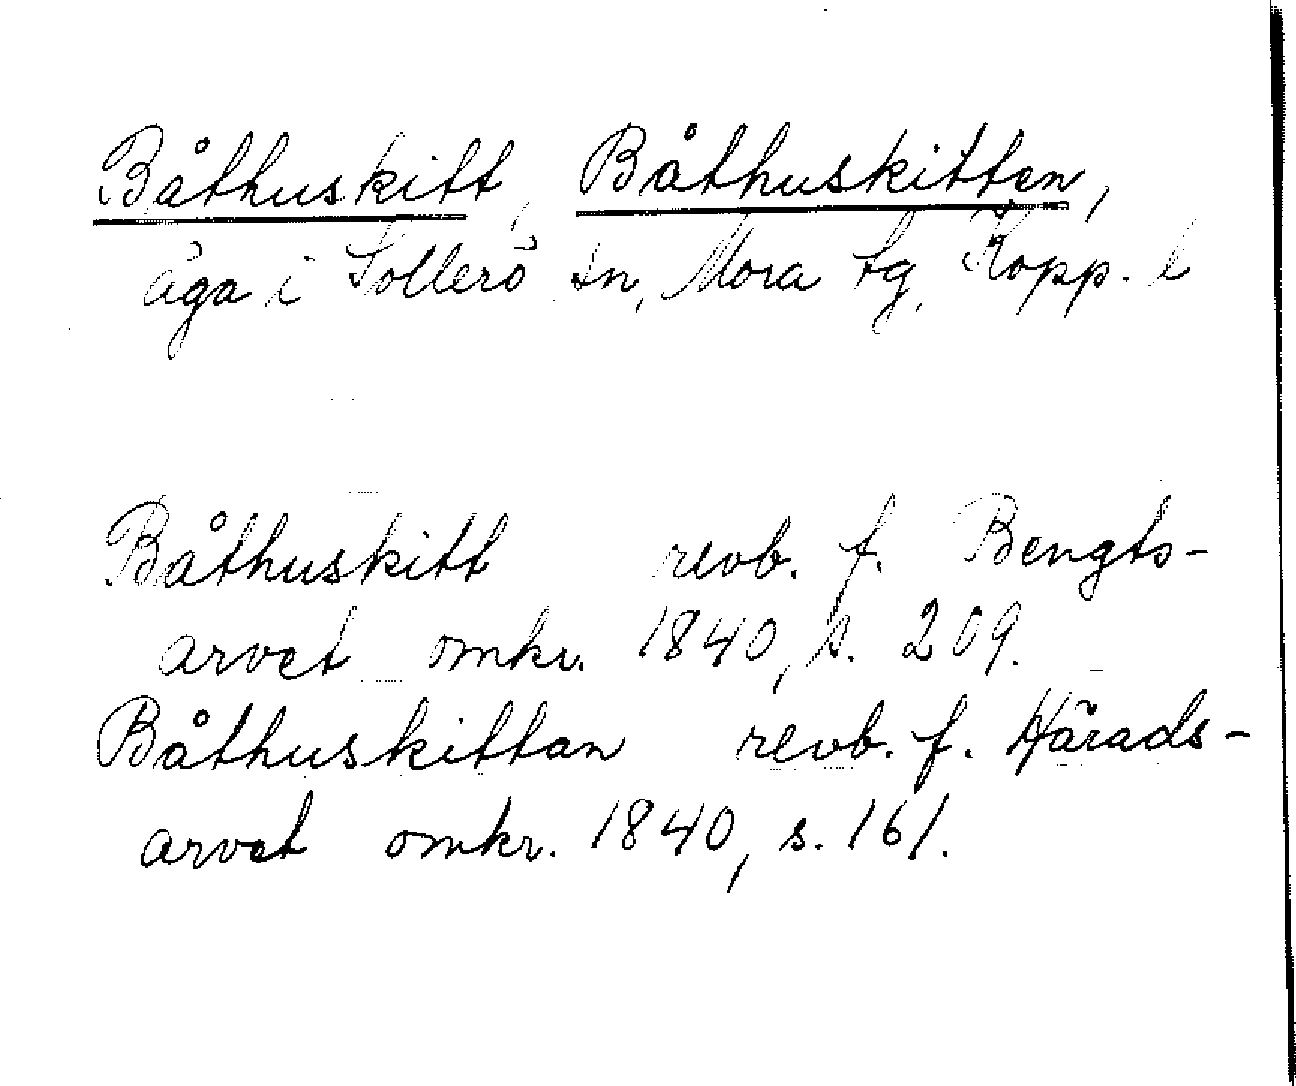 Båthuskitt, Båthuskitten,
äga i Sollerö sn, Mora tg, Kopp. l
Båthuskitt revb. f. Bengts-
arvet omkr. 1840, s. 209.
Båthuskittan revb. f. Härads-
arvet omkr. 1840, s. 161.